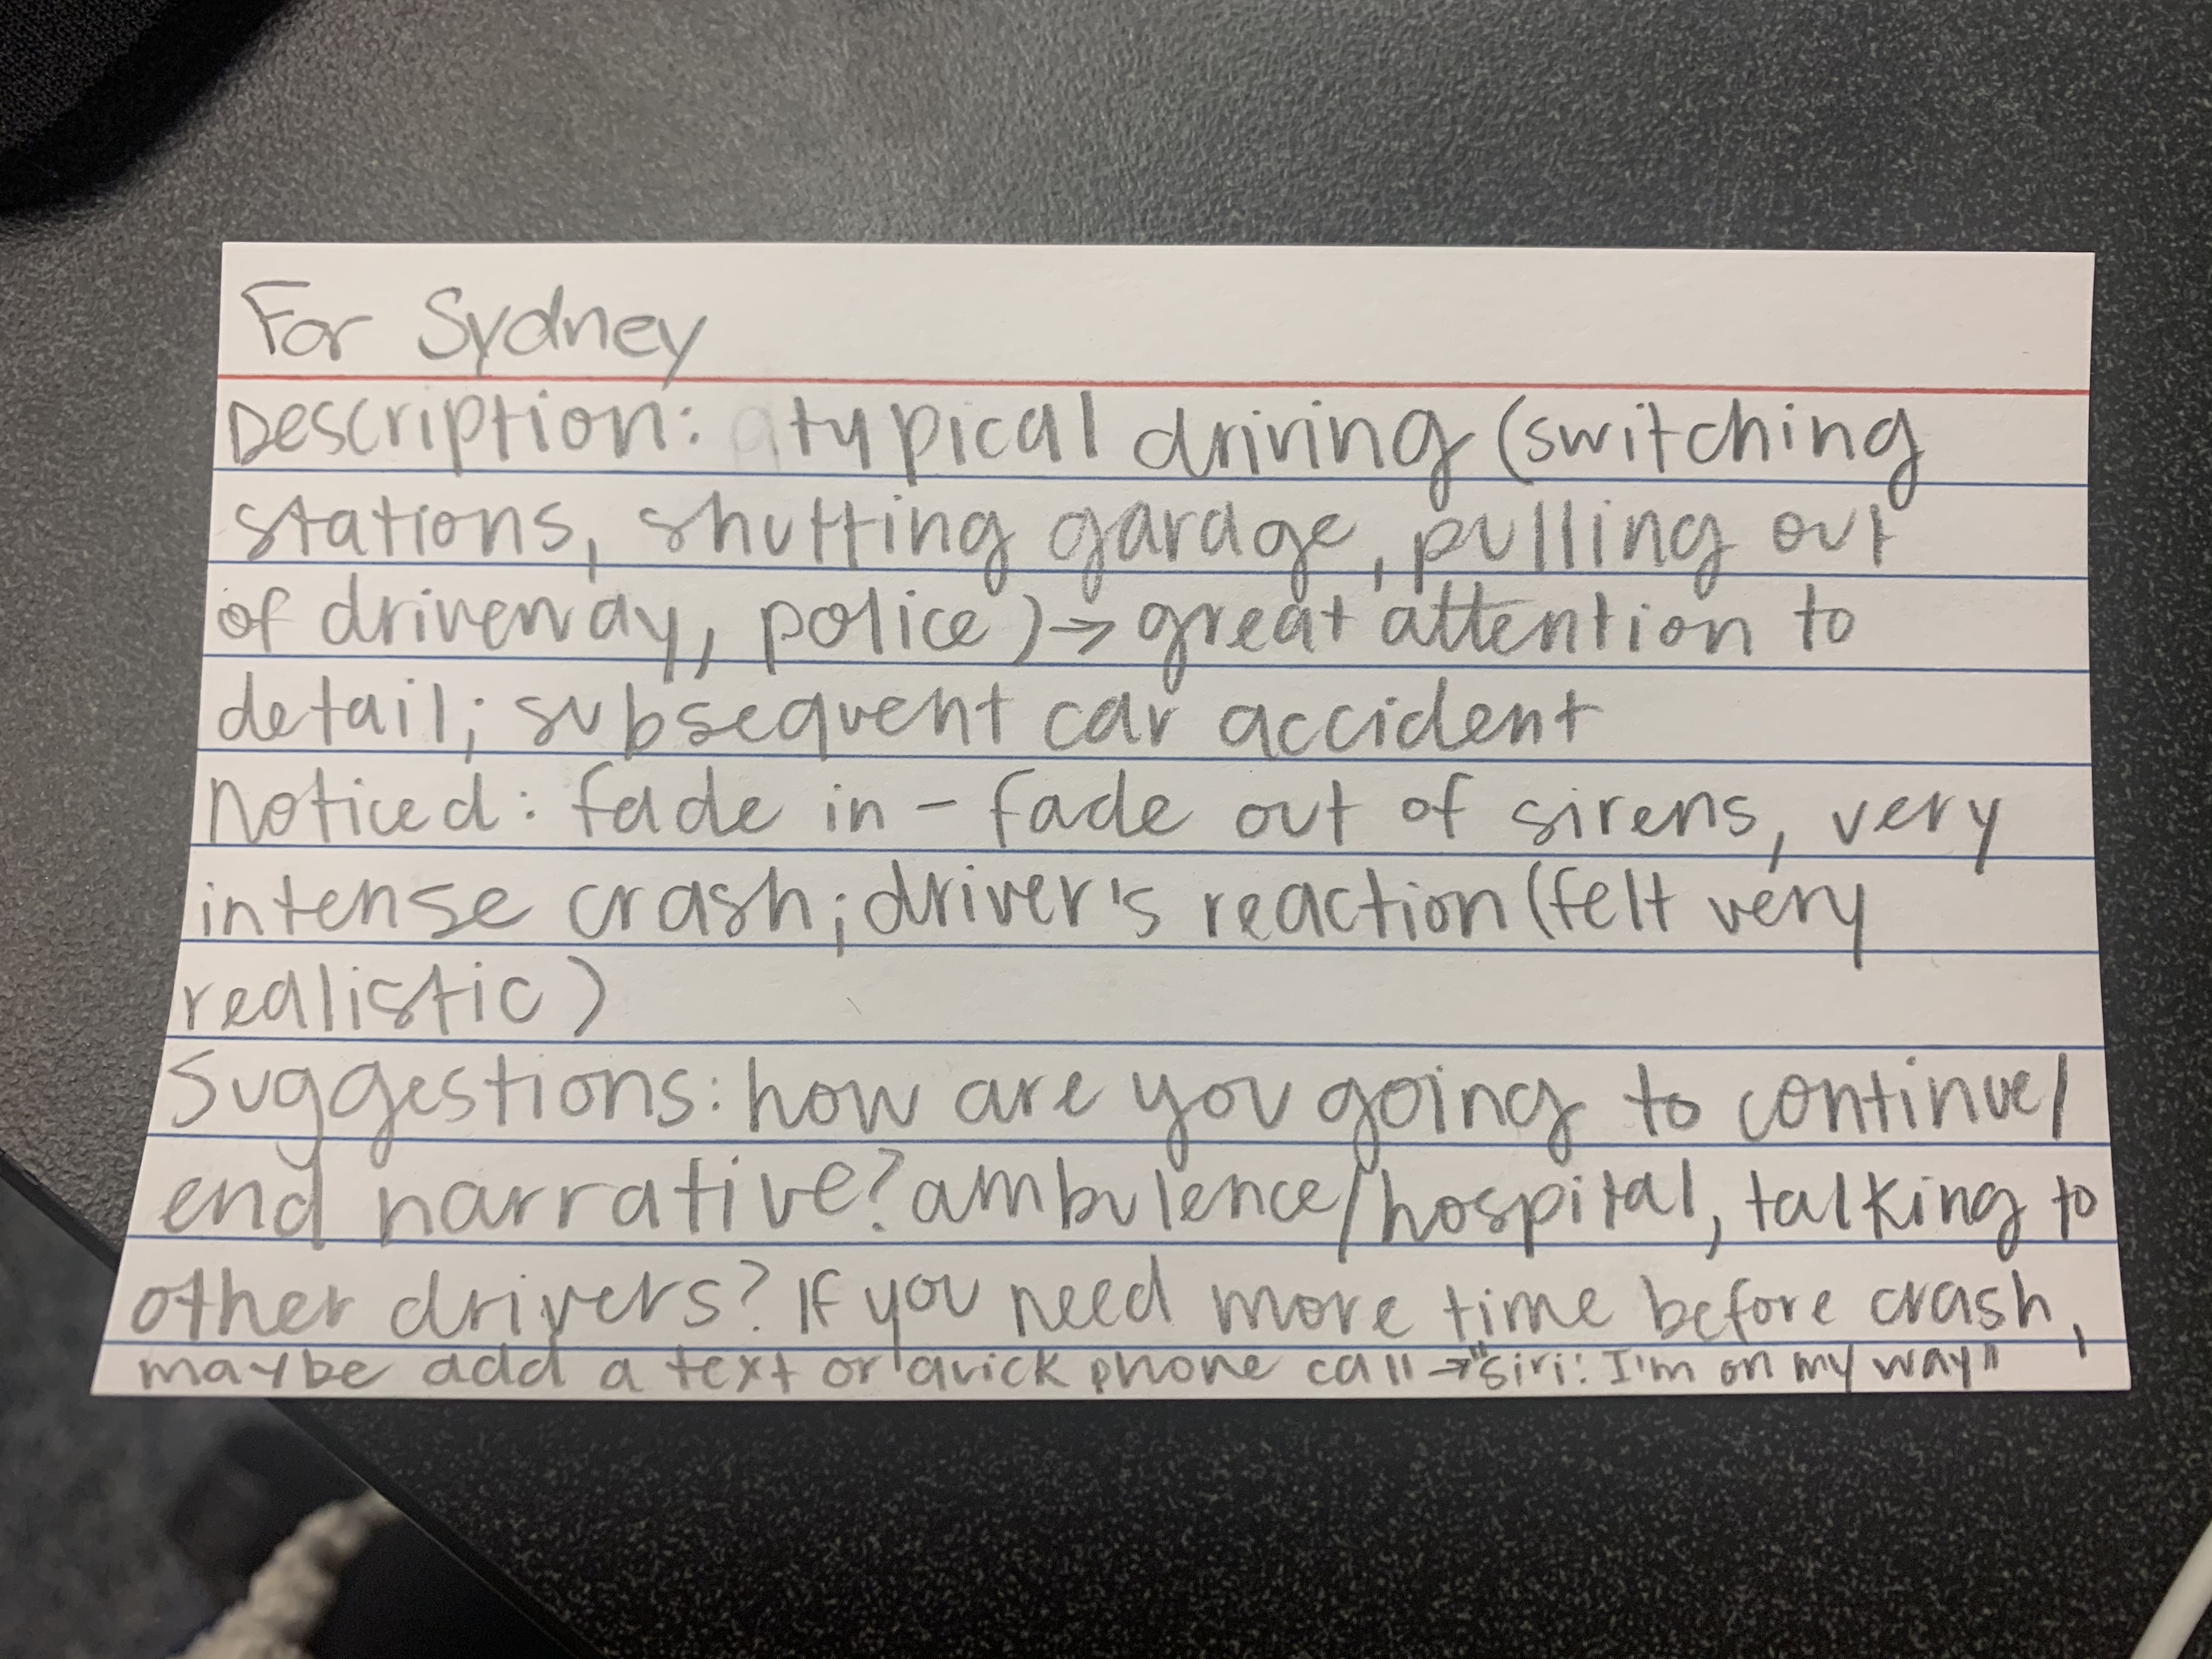 For Sydney
Description: typical driving (switching
stations, shutting garage, pulling out
of driveway, police) → great attention to
detail; subsequent car accident
Noticed: fade in - fade out of sirens, very
intense crash; driver's reaction (felt very
realistic)
Suggestions: how are you going to continue/
end narrative? ambulence/hospital, talking to
other drivers? If you need more time before crash,
maybe add a text or quick phone call → "siri: I'm on my way"